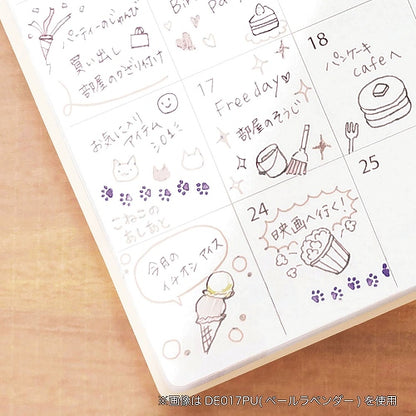 Bir
Pa
パーティーのじゅんび
買い出し
部屋のかざりつけ
17
Freeday♡
部屋のそうじ
18
パンケーキ
cafeへ
お気に入り
アイテム
こねこの
あしあと
24
映画へ行く!
25
今月の
イチオシ アイス
※画像は DE017PU( ペールラベンダー ) を使用